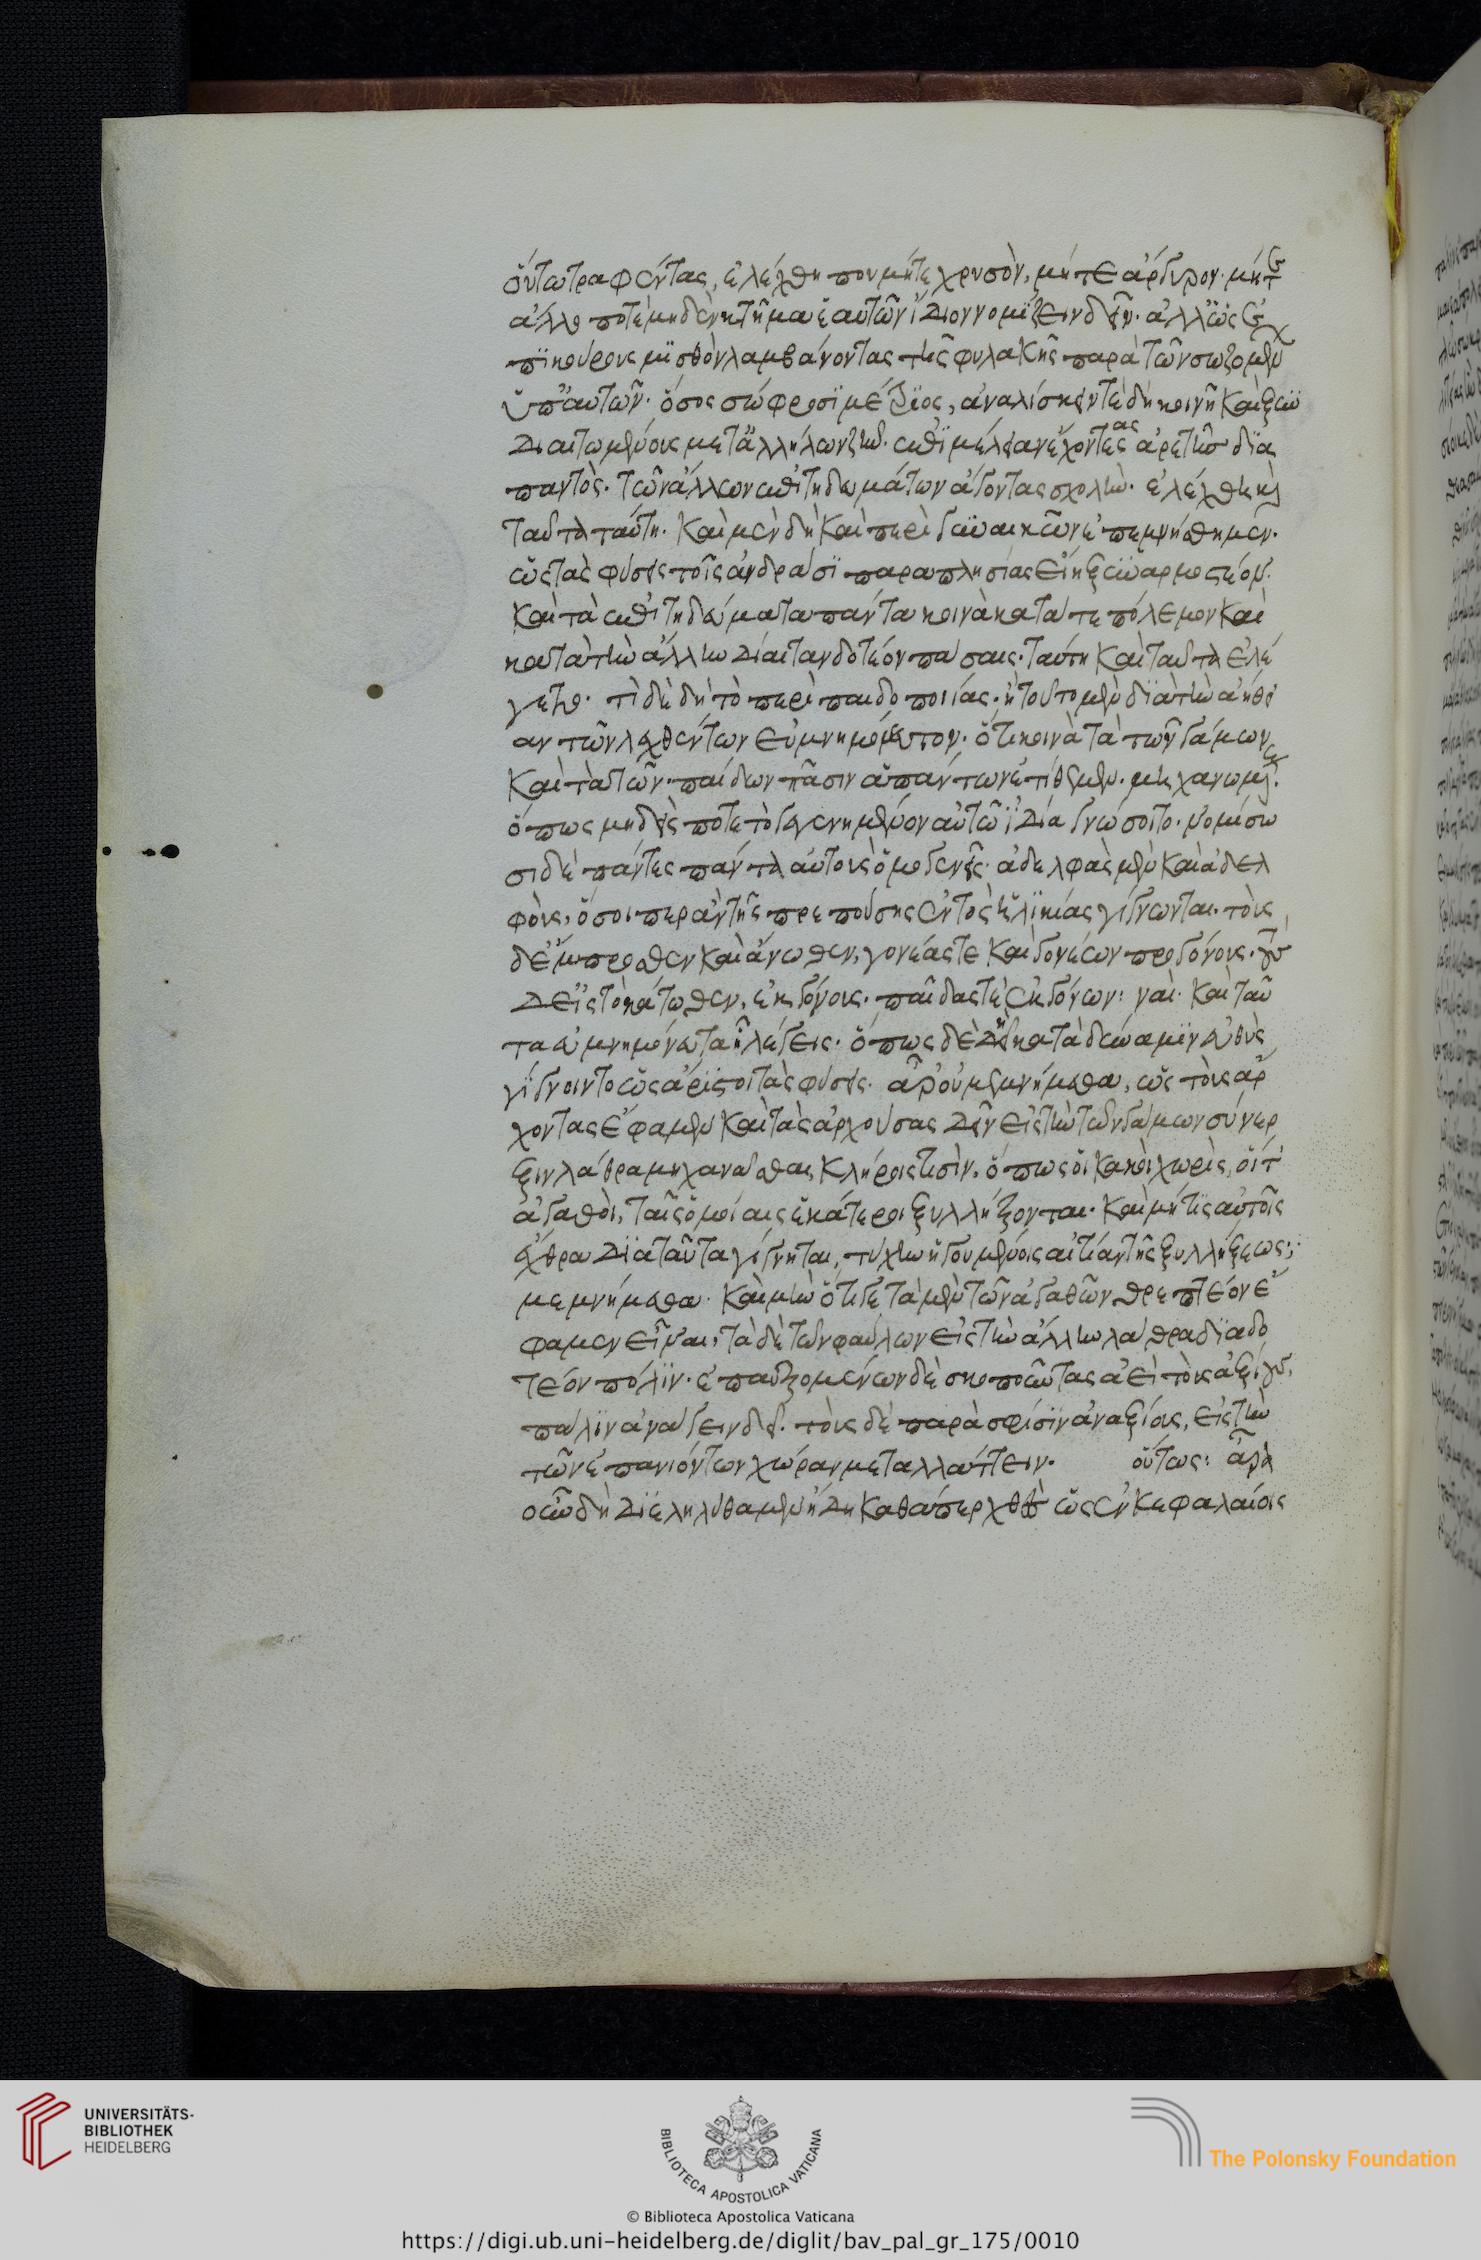 οὕτω τραφέντας, ἐλέχθη που μήτε χρυσὸν, μήτε ἄργυρον· μήτε
ἄλλο ποτὲ μηδὲν κτῆμα ἑαυτῶν ἴδιον νομίζειν δεῖν· ἀλλ' ὡς ἐ
πϊκούρους μϊσθὸν λαμβάνοντας τῆς φυλακῆς παρὰ τῶν σωζομένων
ὑπ' αὐτῶν· ὅσος σώφροσϊ μέτρϊος, ἀναλίσκειν τὲ δὴ κοινῆ καὶ ξυν
διαιτωμένους μετ' ἀλλήλων ζῆν· ἐπϊμέλειαν ἔχοντες ας ἀρετῆς δϊα
παντὸς· τῶν ἄλλων ἐπιτηδευμάτων ἄγοντας σχολὴν· ἐλέχθη καὶ
ταῦτα ταύτη· καὶ μὲν δὴ καὶ περὶ γυναικῶν ἐπεμνήσθημεν·
ὡς τὰς φύσεις τοῖς ἀνδράσϊ παραπλησίας εἴη ξυναρμοστέον·
καὶ τὰ ἐπιτηδεύματα πάντα κοινὰ κατά τε πόλεμον καὶ
κατὰ τὴν ἄλλην δίαιταν δοτέον πάσαις· ταύτη καὶ ταῦτα ἐλέ
γετο· τὶ δὲ δὴ τὸ περὶ παιδοποιίας· ἢ τοῦτο μὲν δϊὰ τὴν ἀήθει
αν τῶν λεχθέντων εὐμνημόνευτον· ὅτι κοινὰ τὰ τῶν γάμων
καὶ τὰ τῶν παίδων πᾶσιν ἁπάντων ἐτίθεμεν· μηχανωμένους
ὅπως μηδεὶς ποτε τὸ γεγενημένον αὐτῶ ἰδία γνώσοιτο· νομίσω
σι δὲ πάντες πάντα αὐτοὺς ὁμογενεῖς· ἀδελφὰς μὲν καὶ ἀδελ
φοὺς, ὅσοι περ ἂν τῆς πρεπούσης ἐντὸς ἡλϊκίας γίγνωνται· τοὺς
δ' ἔμπροσθεν καὶ ἄνωθεν, γονέας τε καὶ γονέων προγόνους· τοὺς
δ' εἰς τὸ κάτωθεν, ἐκγόνους· παῖδας τὲ ἐκγόνων: ναὶ· καὶ ταῦ
τα εὐμνημόνευτα ἧ λέγεις· ὅπως δὲ δὴ κατὰ δύναμϊν εὐθὺς
γίγνοιντο ὡς ἄρϊστοι τὰς φύσεις· ἆρ' οὐ μεμνήμεθα, ὡς τοὺς ἄρ
χοντας ἔφαμεν καὶ τὰς ἀρχούσας δεῖν εἰς τὴν τῶν γάμων σύνερ
ξιν λάθρα μηχανᾶσθαι, κλήροις τισὶν, ὅπως οἱ κακοὶ χωρὶς, οἵ τ'
ἀγαθοὶ, ταῖς ὁμοίαις ἑκάτεροι ξυλλήξονται· καὶ μή τις αὐτοῖς
ἔχθρα δϊὰ ταῦτα γίγνηται, τύχην ἡγουμένοις αἰτίαν τῆς ξυλλήξεως;
μεμνήμεθα· καὶ μὴν ὅτι γε τὰ μὲν τῶν ἀγαθῶν θρεπτέον ἔ
φαμεν εἶναι, τὰ δὲ τῶν φαύλων εἰς τὴν ἄλλην λάθρα δϊαδο
τέον πόλϊν· ἐπαυξομένων δὲ σκοποῦντας ἀεὶ τοὺς ἀξίους,
πάλϊν ἀνάγειν δεῖ· τοὺς δὲ παρὰ σφίσϊν ἀναξίους, εἰς τὴν
τῶν ἐπανιόντων χώραν μεταλλάττειν· οὕτως: ἆρα
οὖν δὴ δϊεληλύθαμεν ἤδη καθάπερ χθὲς ὡς ἐν κεφαλαίοις
UNIVERSITÄTS-
BIBLIOTHEK
HEIDELBERG
BIBLIOTECA APOSTOLICA VATICANA
The Polonsky Foundation
© Biblioteca Apostolica Vaticana
https://digi.ub.uni-heidelberg.de/diglit/bav_pal_gr_175/0010